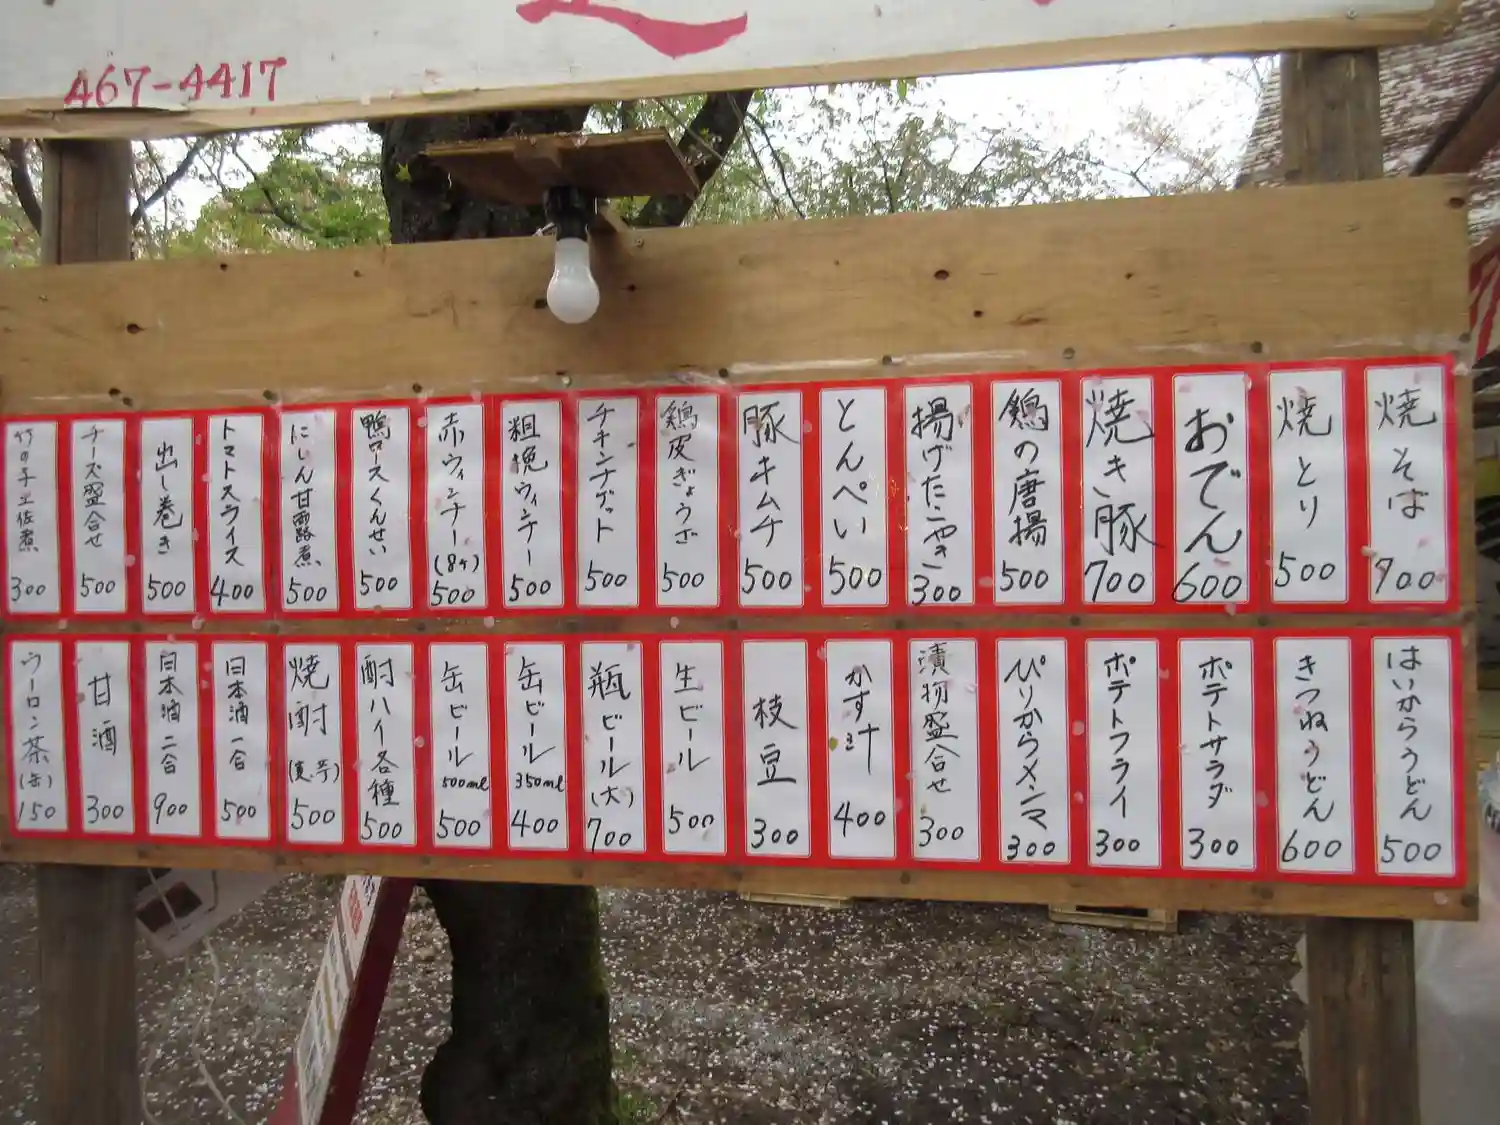 467-4417
焼そば 700
焼とり 500
おでん 600
焼き豚 700
鶏の唐揚 500
揚げたこやき 300
とんぺい 500
豚キムチ 500
鶏皮ぎょうざ 500
チキンナゲット 500
粗挽ウィンナー 500
赤ウィンナー(8ヶ) 500
鴨ロースくんせい 500
にしん甘露煮 500
トマトスライス 400
出し巻き 500
チーズ盛合せ 500
竹の子土佐煮 300
はいからうどん 500
きつねうどん 600
ポテトサラダ 300
ポテトフライ 300
ぴりからメンマ 300
漬物盛合せ 300
かす汁 400
枝豆 300
生ビール 500
瓶ビール(大) 700
缶ビール 350ml 400
缶ビール 500ml 500
酎ハイ各種 500
焼酎(麦、芋) 500
日本酒一合 500
日本酒二合 900
甘酒 300
ウーロン茶(缶) 150